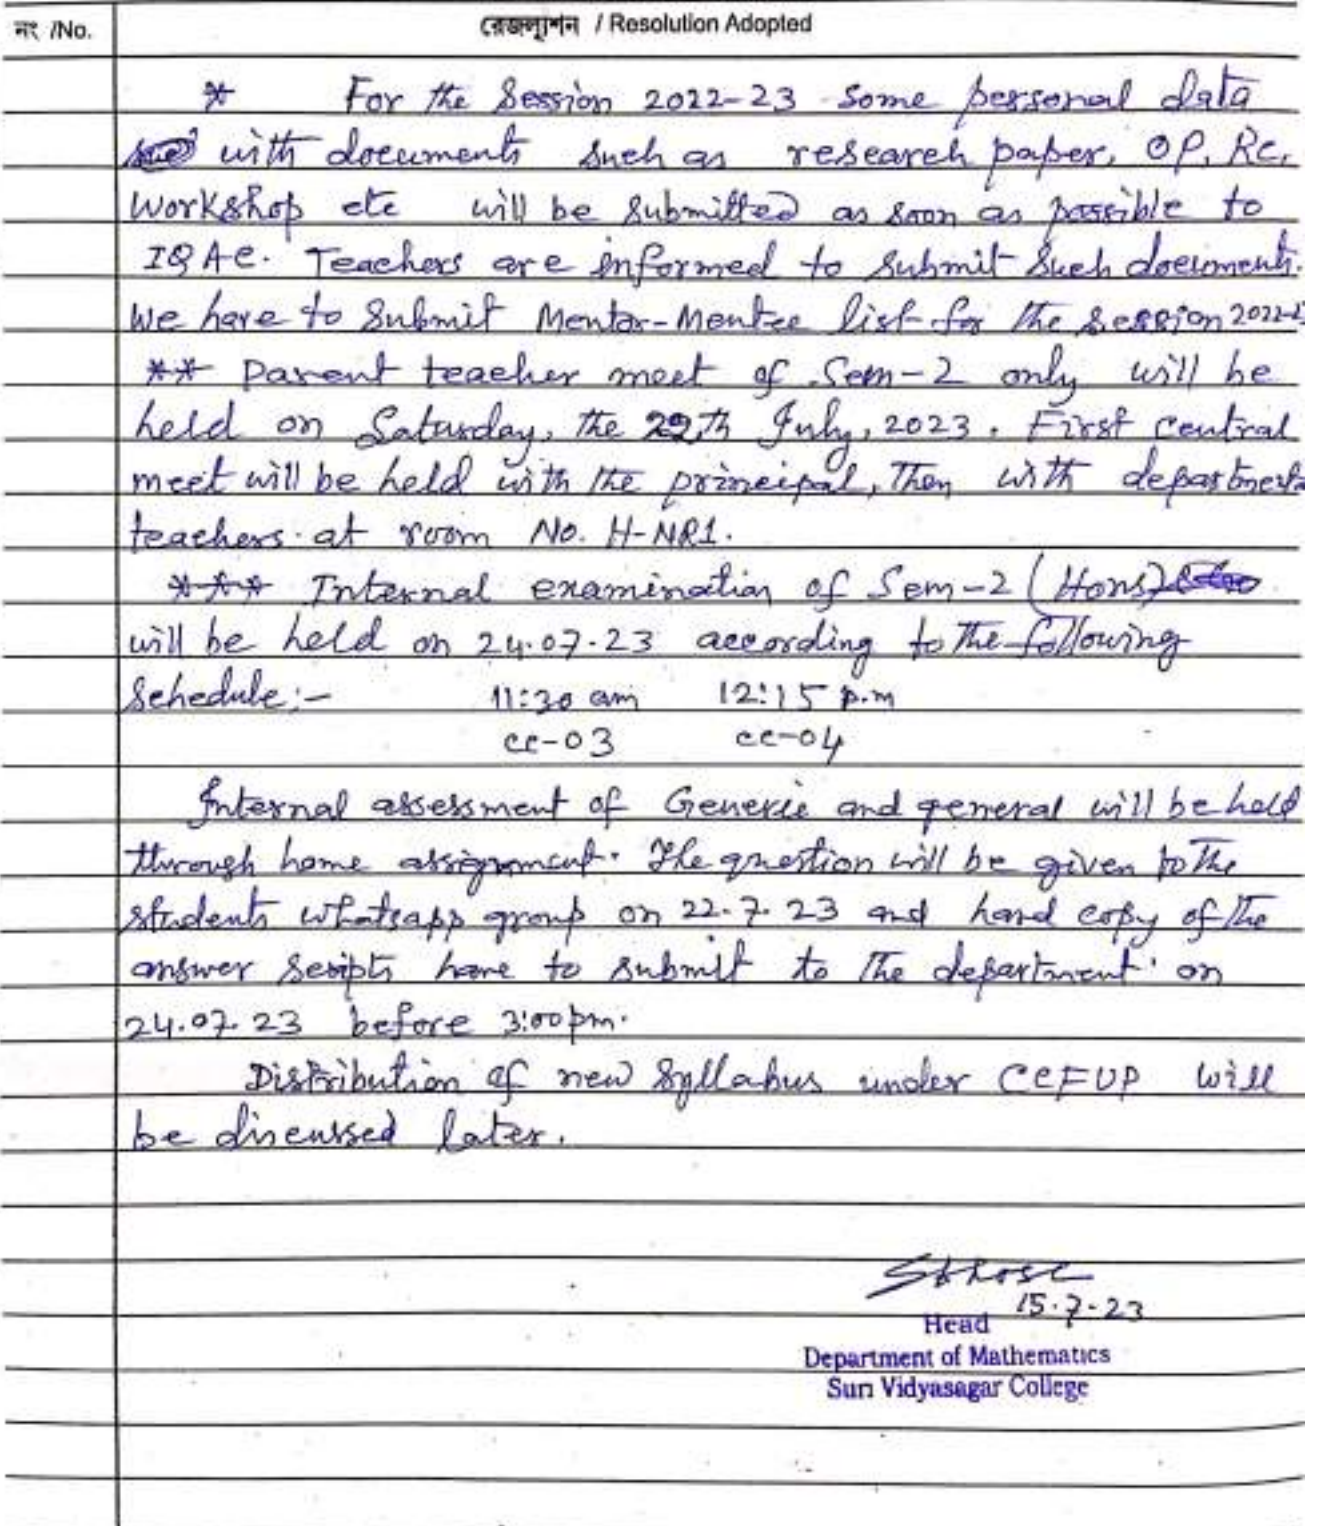 নং /No.
রেজল্যুশন / Resolution Adopted
* For the Session 2022-23 some personal data
with documents such as research paper, OP, RC,
Workshop etc will be submitted as soon as possible to
IQAC. Teachers are informed to submit such documents.
We have to submit Mentor-Mentee list for the session
** Parent teacher meet of Sem-2 only will be
held on Saturday, the th July, 2023. First central
meet will be held with the principal, then with
teachers at room No. H-NR1.
*** Internal examination of Sem-2 (Hons)
will be held on 24.07.23 according to the following
Schedule:- 11:30 am 12:15 p.m
cc-03 cc-04
Internal assessment of Generic and general will be held
through home assignment. The question will be given to the
students whatsapp group on 22.7.23 and hard copy of the
answer scripts have to submit to the department on
24.07.23 before 3:00pm.
Distribution of new Syllabus under CCFUP will
be discussed later.
15.7.23
Head
Department of Mathematics
Suri Vidyasagar College